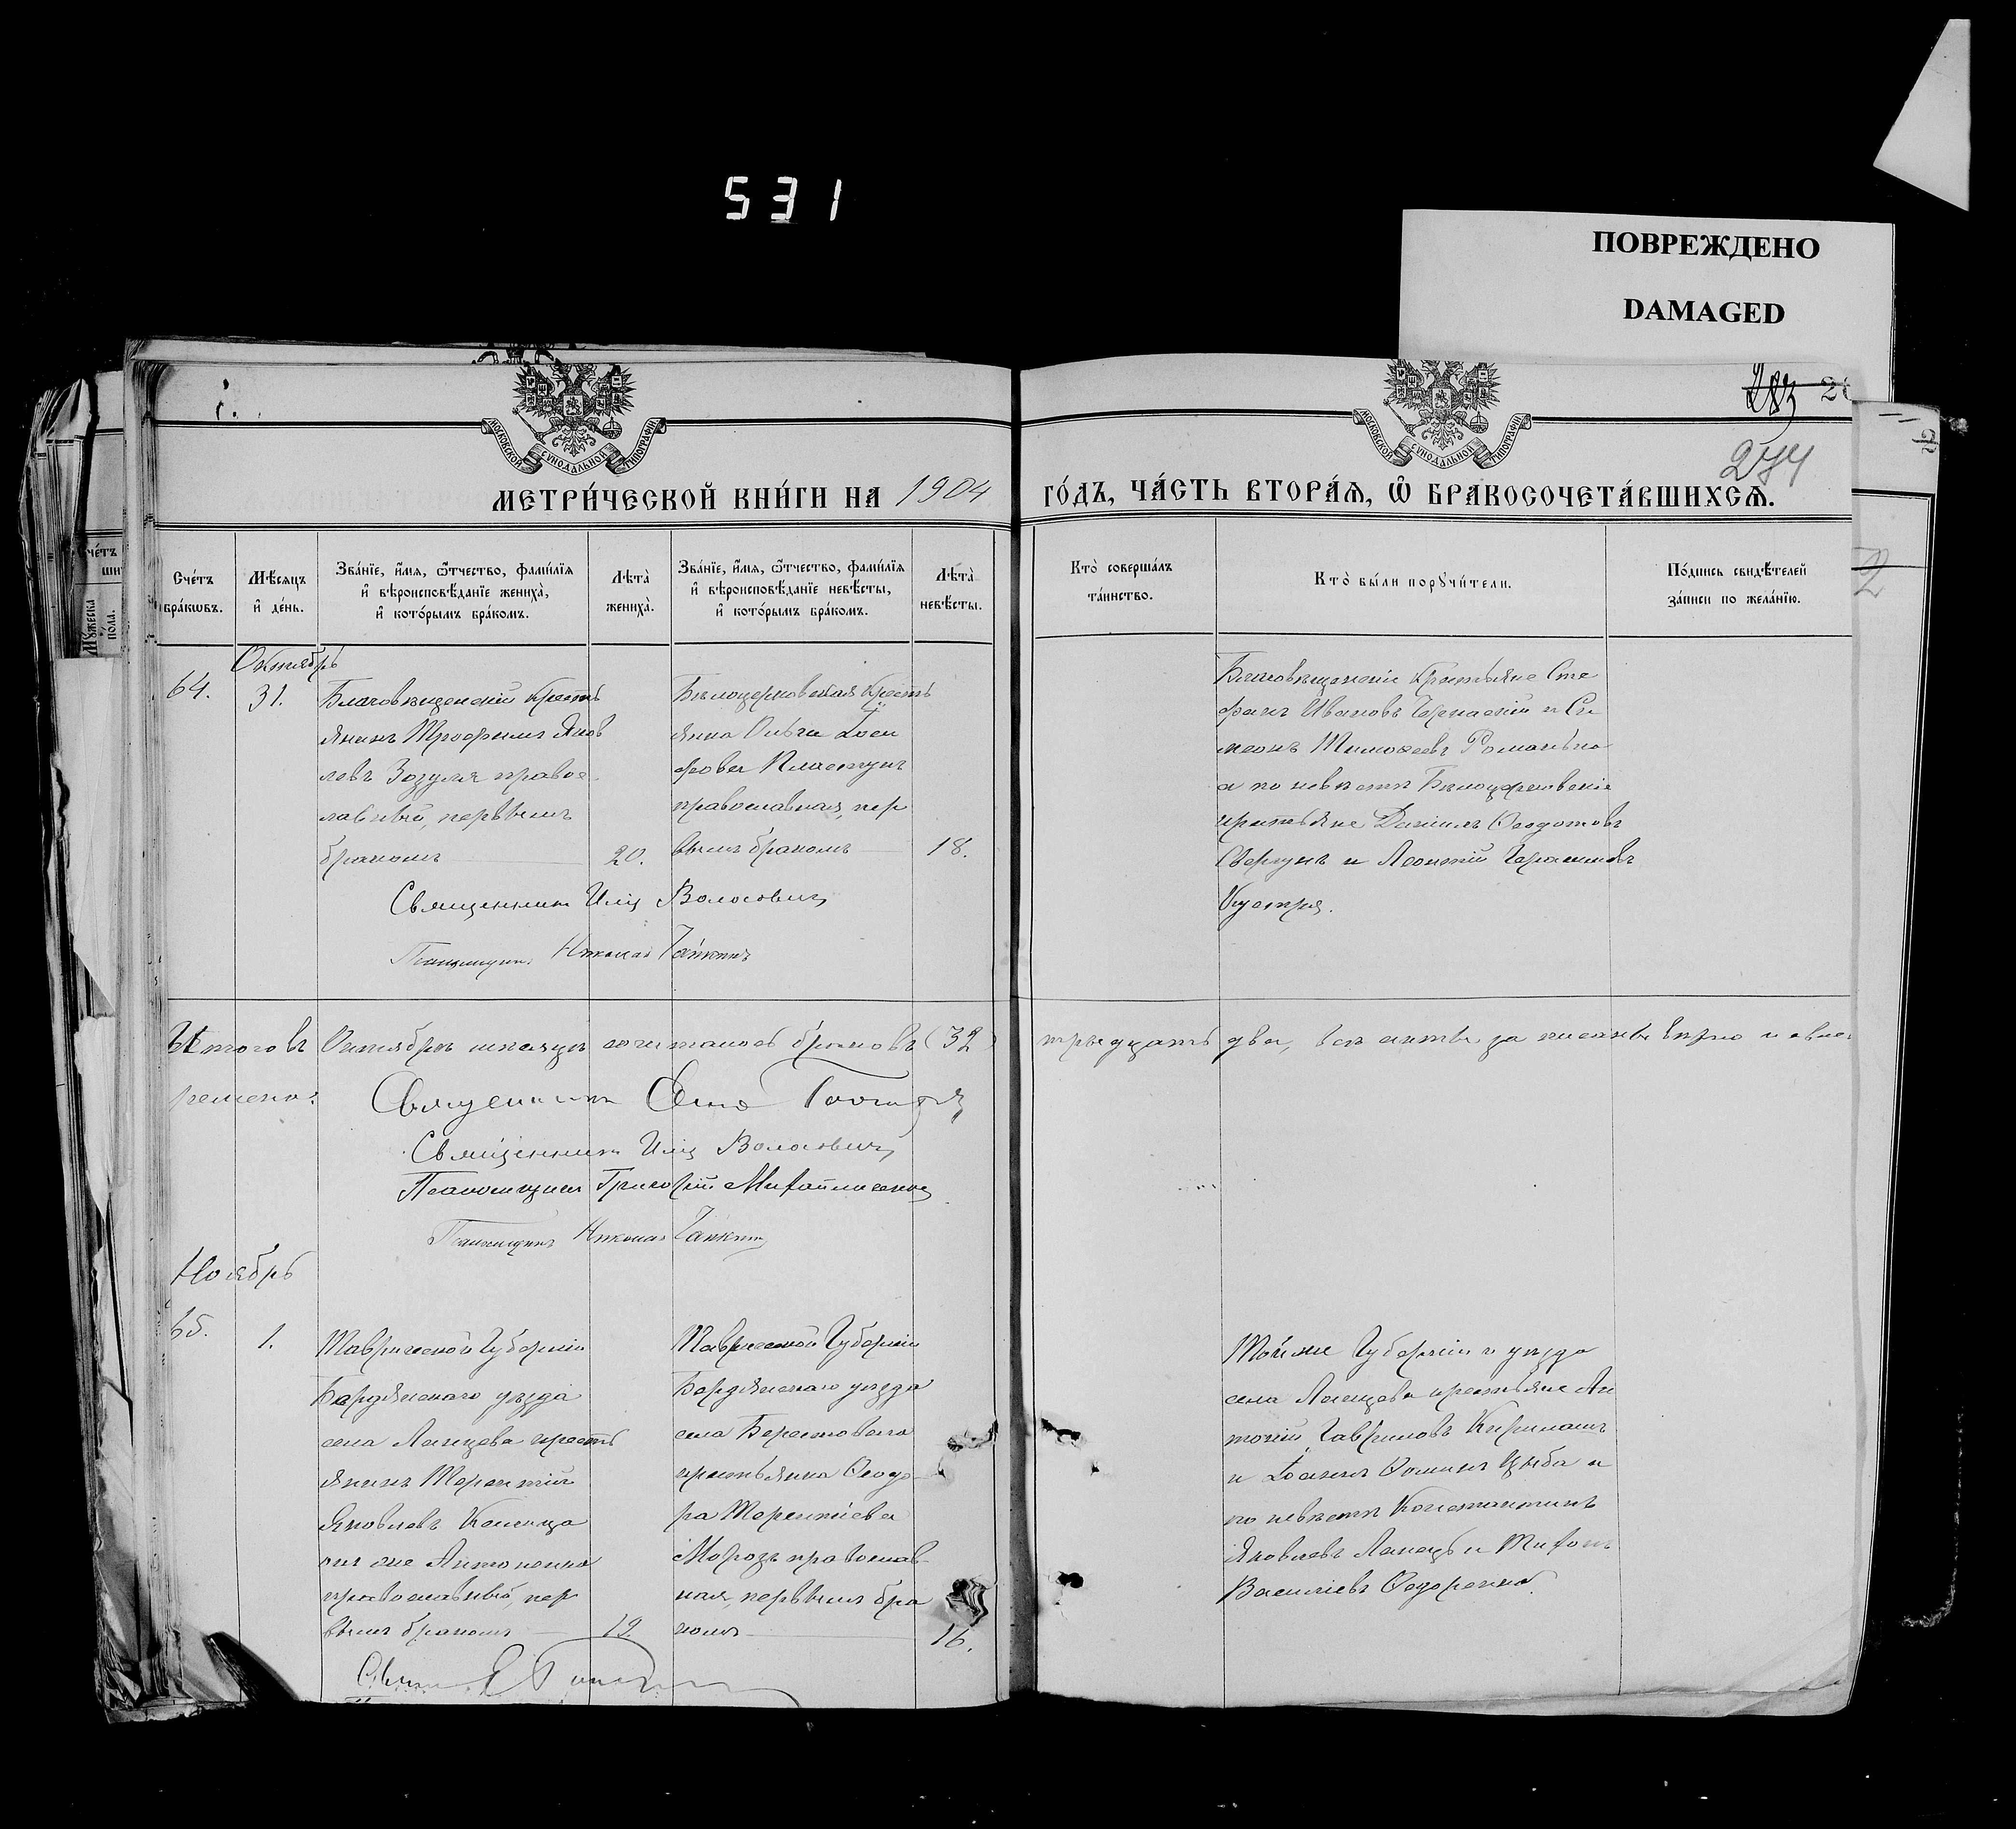 531
ПОВРЕЖДЕНО
DAMAGED
283
274
МОСКОВСКОЙ СУНОДАЛЬНОЙ ТИПОГРАФІИ
МОСКОВСКОЙ СУНОДАЛЬНОЙ ТИПОГРАФІИ
МЕТРИ́ЧЕСКОЙ КНИ́ГИ НА 1904 ГО́ДЪ, ЧА́СТЬ ВТОРА́Ѧ, Ѿ БРАКОСОЧЕТА́ВШИХСѦ.
Сче́тъ бра́кѡвъ.
Мѣ́сѧцъ и҆ де́нь.
Зва́нїе, и҆́мѧ, ѻ҆́тчество, фами́лїѧ
и҆ вѣроисповѣ́данїе жениха̀,
и҆ кото́рымъ бра́комъ.
Лѣта̀ жениха̀.
Зва́нїе, и҆́мѧ, ѻ҆́тчество, фами́лїѧ
и҆ вѣроисповѣ́данїе невѣ́сты,
и҆ кото́рымъ бра́комъ.
Лѣта̀ невѣ́сты.
Кто̀ соверша́лъ та́инство.
Кто̀ бы́ли порꙋчи́тели.
По́дпись свидѣ́телей за́писи по жела́нїю.
Октябрь
64.
31.
Благовѣщенскій кресть
янинъ Трофимъ Яков
левъ Зозуля правос
лавный, первымъ
бракомъ
20.
Бѣлоцерковская кресть
янка Ольга Іоси
фова Пластунъ
православная, пер
вымъ бракомъ
18.
Благовѣщенскіе крестьяне Сте
фанъ Ивановъ Черпаскій и Си
меонъ Тимоѳеевъ Романько
а по невѣстѣ Бѣлоцерковскіе
крестьяне Даніилъ Ѳеодотовъ
Свергунъ и Леонтій Герасимовъ
Кустря.
Священникъ Илія Волосовичъ
Псаломщикъ Николай Чапкинъ
Итого въ Октябрѣ мѣсяцѣ сочетаносъ браковъ (32) тридцать два, всѣ акты записаны вѣрно и свое
ремено.
Священникъ
Священникъ Илія Волосовичъ
Псаломщикъ Григорій Михайличенко
Псаломщикъ Николай Чапкинъ
Ноябрь
65.
1.
Таврической Губерніи
Бердянскаго уѣзда
села Ланцева кресть
янинъ Терентій
Яковлевъ Капица
онъ же Антоненко
православный, пер
вымъ бракомъ
19.
Таврической Губерніи
Бердянскаго уѣзда
села Берестоваго
крестьянка Ѳеодо
ра Терентіева
Морозъ православ
ная, первымъ бра
комъ
16.
Той же Губерніи и уѣзда
села Ланцева крестьяне Ан
тоній Гавриловъ Кирилашъ
и Іоаннъ Ѳоминъ Цыба и
по невѣстѣ Константинъ
Яковлевъ Ланецъ и Тихонъ
Василіевъ Ѳедоренко.